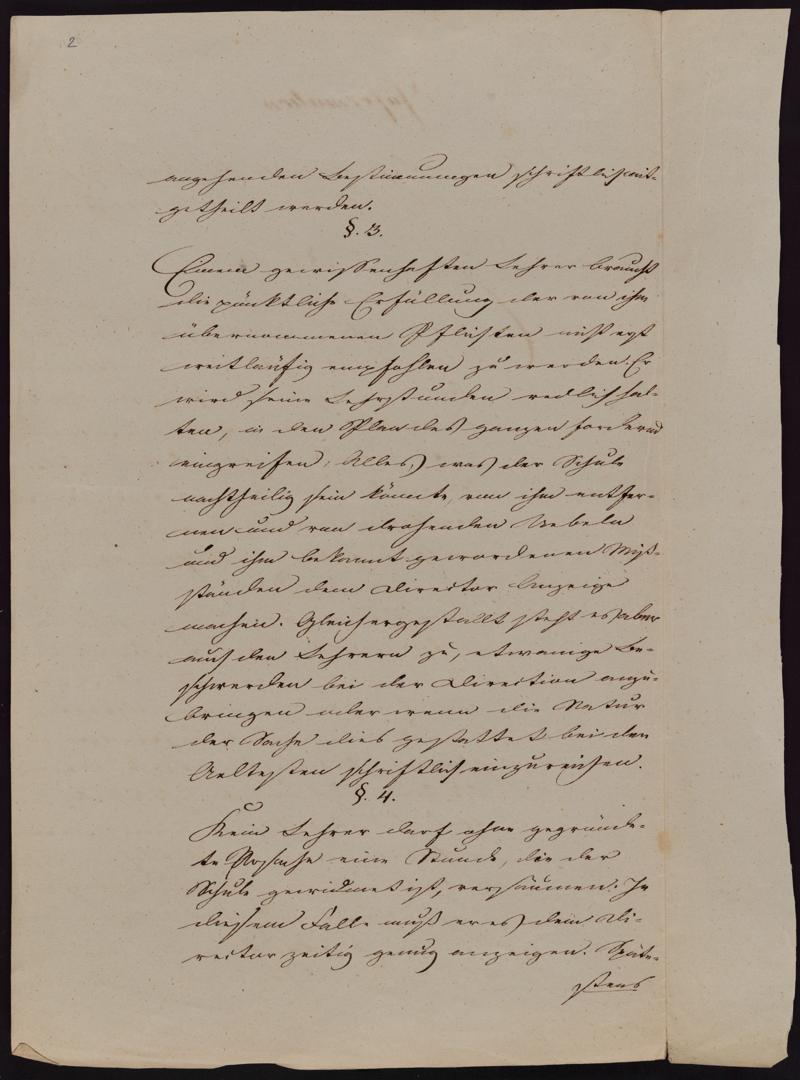 2
angehenden Bestimmungen schriftlich mit-
getheilt werden.
§. 3.
Einem gewissenhaften Lehrer braucht
die pünktliche Erfüllung der von ihm
übernommenen Pflichten nicht erst
weitläufig empfohlen zu werden. Er
wird seine Lehrstunden redlich hal-
ten, in den Plan des ganzen fordernd
eingreifen, Alles, was der Schule
nachtheilig sein könnte, von ihm entfer-
nen und von drohenden Uebeln
und ihm bekannt gewordenen Miß-
ständen dem Director Anzeige
machen. Gleichergestallt steht es aber
auch den Lehrern zu, etwanige Be-
schwerden bei der Direction anzu-
bringen oder wenn die Natur
der Sache dies gestattet bei den
Aeltesten schriftlich einzureichen.
§. 4.
Kein Lehrer darf ohne gegründe-
te Ursache eine Stunde, die der
Schule gewidmet ist, versäumen. In
diesem Falle muß er es dem Di-
rector zeitig genug anzeigen. Späte-
stens